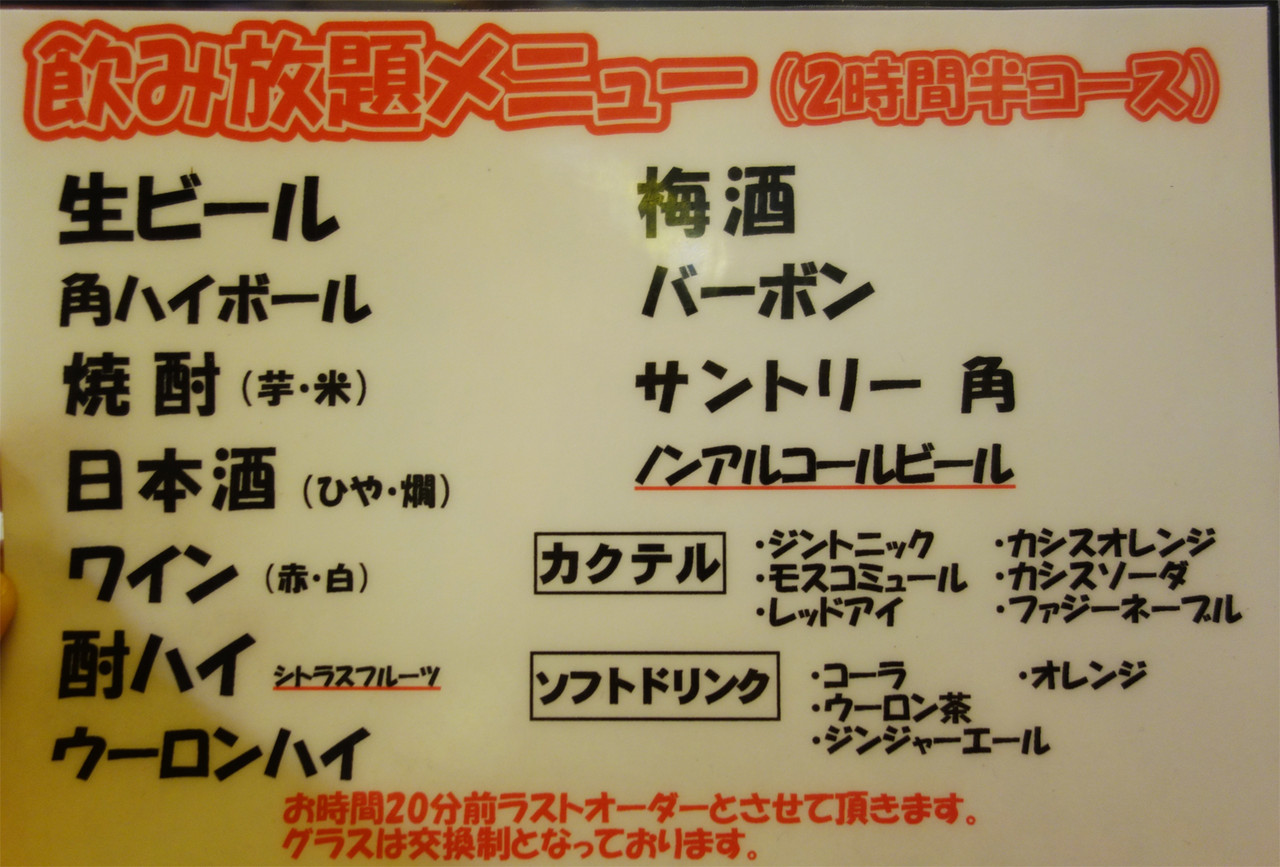 飲み放題メニュー(2時間半コース)
生ビール
角ハイボール
焼酎(芋・米)
日本酒(ひや・燗)
ワイン(赤・白)
酎ハイ シトラスフルーツ
ウーロンハイ
梅酒
バーボン
サントリー 角
ノンアルコールビール
カクテル
・ジントニック ・カシスオレンジ
・モスコミュール ・カシスソーダ
・レッドアイ ・ファジーネーブル
ソフトドリンク
・コーラ ・オレンジ
・ウーロン茶
・ジンジャーエール
お時間20分前ラストオーダーとさせて頂きます。
グラスは交換制となっております。